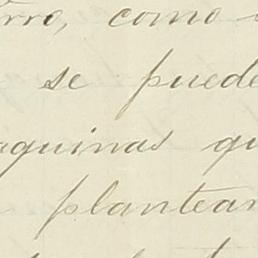 rro, como
se puede
aquinas qu
plantear